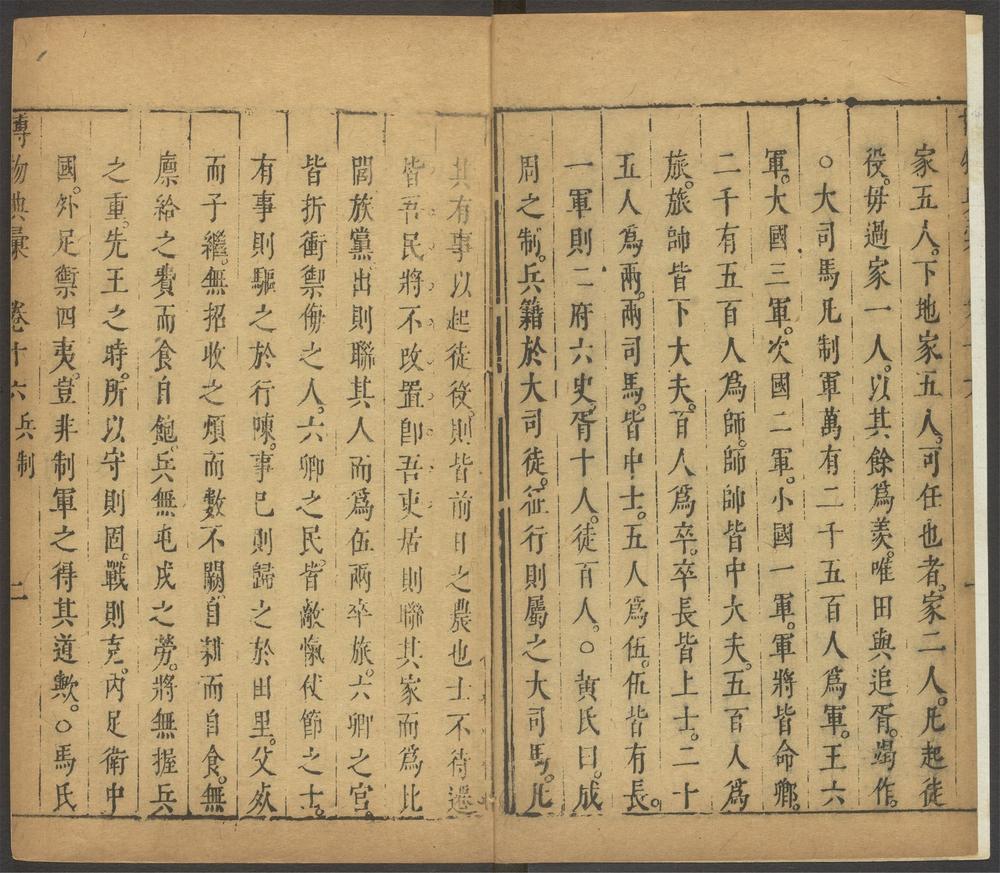 家五人。下地家五人。可任也者。家二人。凡起徒
役。毋過家一人。以其餘為羨。唯田與追胥。竭作。
○大司馬凡制軍萬有二千五百人爲軍。王六
軍。大國三軍。次國二軍。小國一軍。軍將皆命卿。
二千有五百人爲師。師帥皆中大夫。五百人爲
旅。旅帥皆下大夫。百人爲卒。卒長皆上士。二十
五人爲兩。兩司馬。皆中士。五人爲伍。伍皆有長。
一軍則二府六史。胥十人。徒百人。○黄氏曰。成
周之制。兵籍於大司徒。征行則屬之大司馬。凡
其有事以起徒役。則皆前日之農也士不待遷
皆吾民將不改置卽吾吏居則聯其家而爲比
閭族黨出則聯其人而爲伍兩卒旅。六卿之官。
皆折衝禦侮之人。六卿之民。皆敵愾仗節之士。
有事則驅之於行陳。事已則歸之於田里。父死
而子繼。無招收之煩而數不闕。自耕而自食。無
廪給之費而食自飽。兵無屯戍之勞。將無握兵
之重。先王之時。所以守則固。戰則克。内足衛中
國。外足禦四夷。豈非制軍之得其道歟。○馬氏
博物典彙 卷十六兵制 二